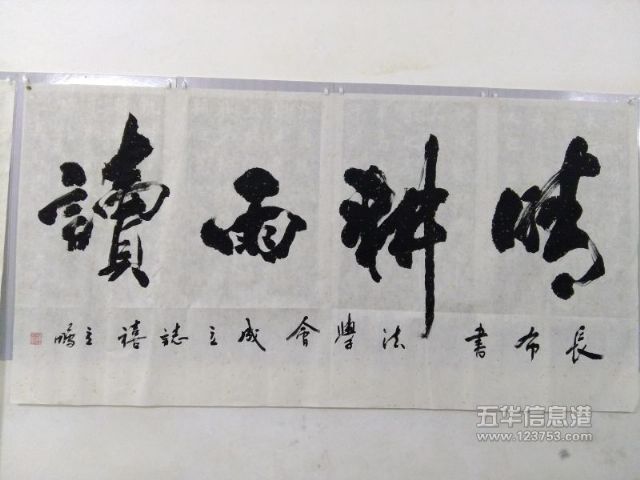 晴耕雨讀
長布書法學會成立誌禧 立鵬
五华信息港
www.123753.com